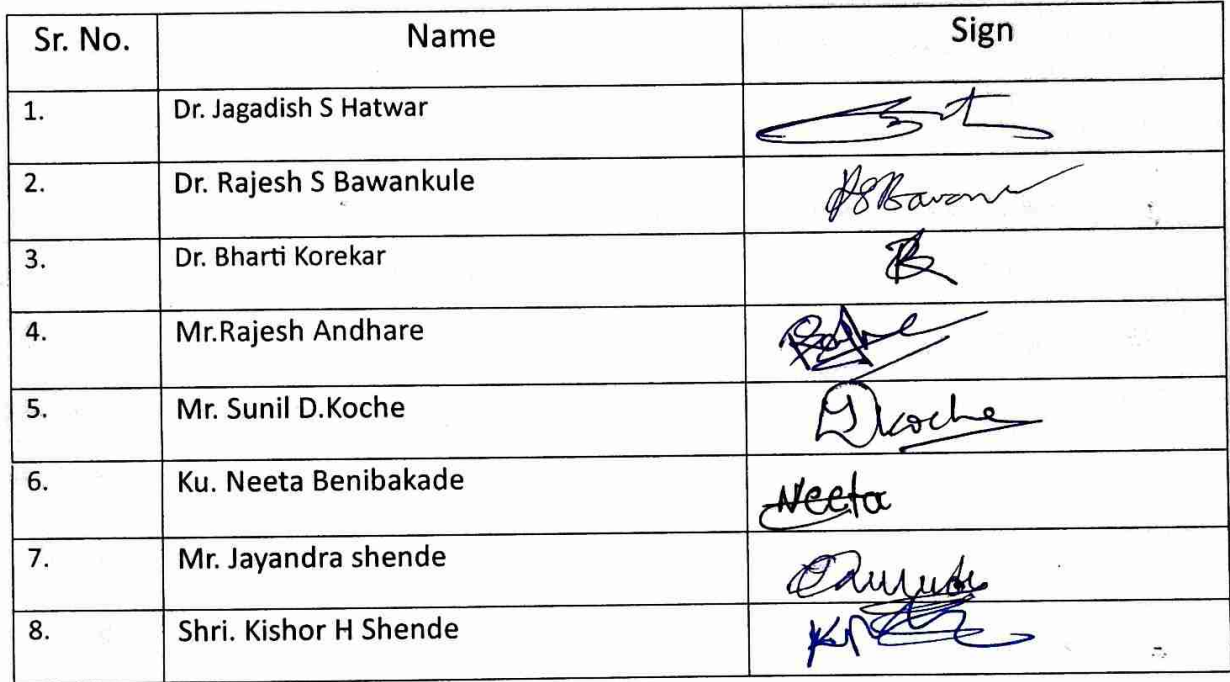 Sr. No. Name Sign
1. Dr. Jagadish S Hatwar
2. Dr. Rajesh S Bawankule
3. Dr. Bharti Korekar
4. Mr.Rajesh Andhare
5. Mr. Sunil D.Koche Dkoche
6. Ku. Neeta Benibakade Neeta
7. Mr. Jayandra shende
8. Shri. Kishor H Shende